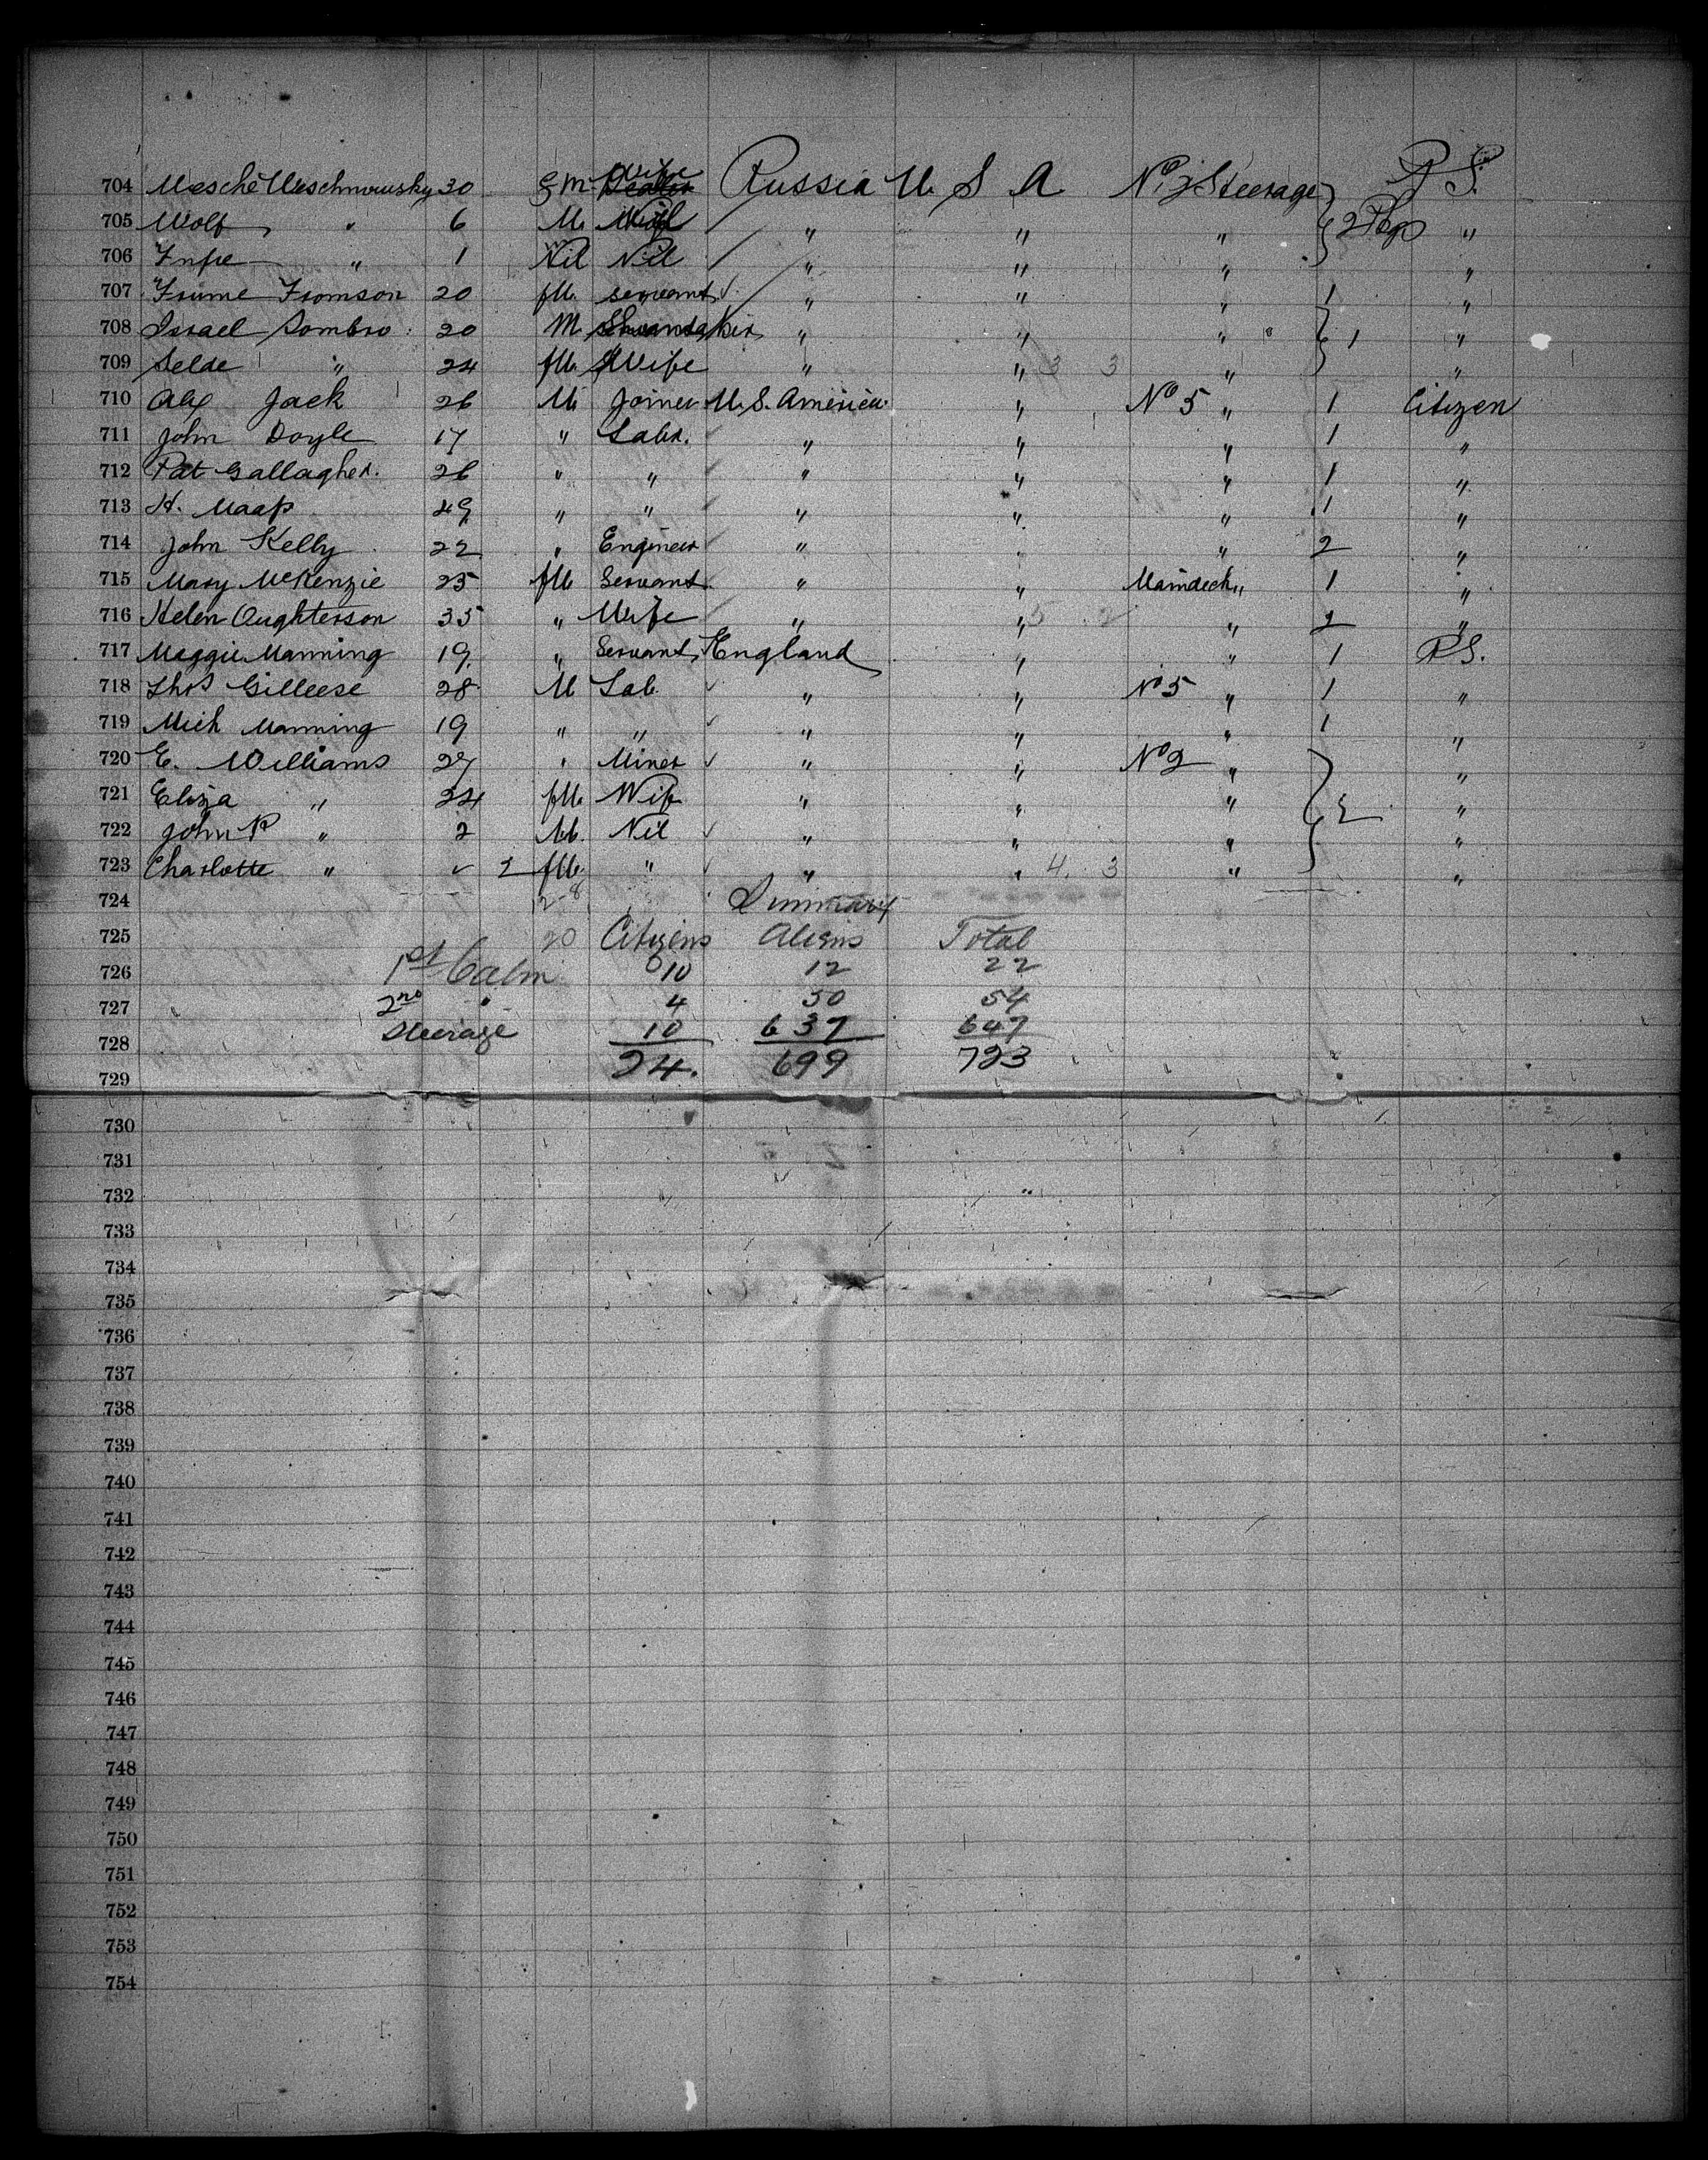 704 Mesche Weschnowsky 30 fM. Wife Russia U. S. A No. 2 Steerage P.S.
705 Wolf " 6 M. " " " 2 "
706 " 1 Nil Nil " " " "
707 Frume Fromson 20 fM. servant " " " 1 "
708 Israel Sombro 20 M. " " " 1 "
709 Selde " 24 fM. Wife " " 3 3 " "
710 Alex Jack 26 M. Joiner U.S. America " No 5 " 1 Citizen
711 John Doyle 17 " Labr. " " " 1 "
712 Pat Gallagher. 26 " " " " " 1 "
713 H. Maap 49 " " " " " 1 "
714 John Kelly 22 " Engineer " " " 2 "
715 Mary McKenzie 25 fM. Servant " " Maindeck " 1 "
716 Helen Oughterson 35 " Wife " " 5 2 " 2 "
717 Maggie Manning 19 " Servant England " " 1 P.S.
718 Thos Gilleese 28 M Lab. " " No 5 " 1 "
719 Mich Manning 19 " " " " " 1 "
720 E. Williams 27 " Miner " " No 2 " "
721 Eliza " 24 fM. Wife " " " 2 "
722 John P " 2 M. Nil " " " "
723 Charlotte " fM. " " " 4. 3 " "
724 Summary
725 20 Citizens Aliens Total
726 1st Cabin 10 12 22
727 2nd " 4 50 54
728 Steerage 10 637 647
729 24. 699 723
730
731
732
733
734
735
736
737
738
739
740
741
742
743
744
745
746
747
748
749
750
751
752
753
754